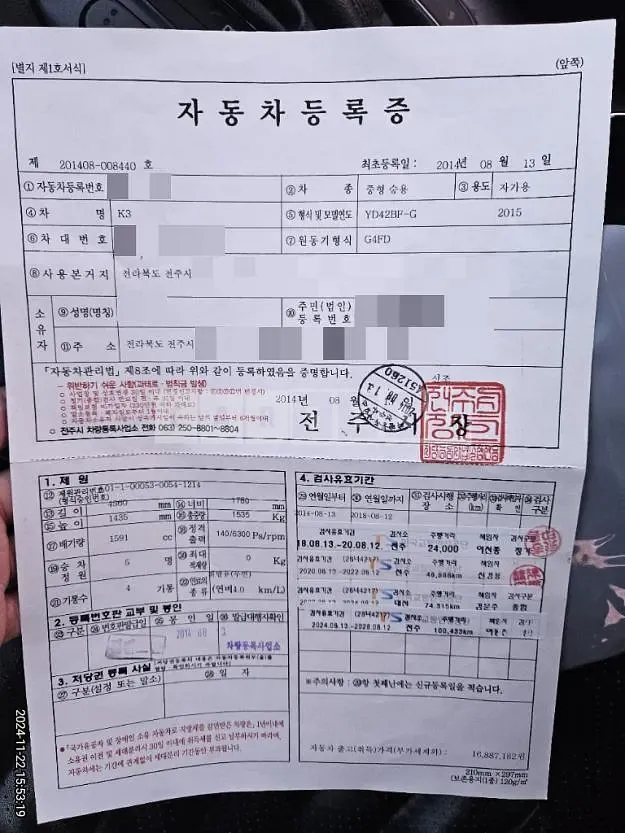 [별지 제1호서식]
(앞쪽)
자동차등록증
제 201408-008440 호
최초등록일 : 2014년 08 월 13 일
① 자동차등록번호
② 차 종 중형 승용
③ 용도 자가용
④ 차 명 K3
⑤ 형식 및 모델연도 YD42BF-G 2015
⑥ 차대번호
⑦ 원동기형식 G4FD
⑧ 사용본거지 전라북도 전주시
소유자
⑨ 성명(명칭)
⑩ 주민(법인)등록번호
⑪ 주 소 전라북도 전주시
「자동차관리법」 제8조에 따라 위와 같이 등록하였음을 증명합니다.
2014년 08
전 주 시 장
○ 전주시 차량등록사업소 전화 063) 250-8801~8804
1. 제 원
⑫ 제원관리번호 01-1-00053-0054-1214
(형식승인번호)
⑬ 길 이 4560 mm
⑭ 너비 1780 mm
⑮ 높 이 1435 mm
총중량 1535 Kg
⑰ 배기량 1591 cc
정격출력 140/6300 Ps/rpm
⑲ 승차정원 5 명
최대적재량 0 Kg
㉑ 기통수 4 기통
연료의 종류
km/L)
2. 등록번호판 교부 및 봉인
구분 번호판발급일 봉인일 발급대행자확인
차량등록사업소
3. 저당권 등록 사실
㉗ 구분(설정 또는 말소) 일 자
●「국가유공자 및 장애인 소유 자동차로 지방세를 감면받은 차량은, 1년이내에
소유권 이전 및 세대분리시 30일 이내에 취득세를 신고 납부하시기 바라며,
자동차세는 기간에 관계없이 세대분리 기간동안 부과됩니다.
4. 검사유효기간
연월일부터 연월일까지 검사시행장소 주행거리(km) 책임자확인 검사구분
2014-08-13 2018-08-12
검사유효기간 검사소 주행거리 책임자
18.08.13.~20.08.12. 전주 24,000
검사유효기간 검사소 주행거리 책임자
2020.08.13.~2022.08.12. 전주
검사유효기간 주행거리 책임자 검사구분
74,315km 종합
검사유효기간 검사소 주행거리 책임자
2024.08.13.~2026.08.12. 전주 100,433km
※주의사항 : ㉙항 첫째난에는 신규등록일을 적습니다.
자동차 출고(취득)가격(부가세제외) : 16,887,182원
210mm×297mm
(보존용지(1종) 120g/㎡
2024-11-22 15:53:19